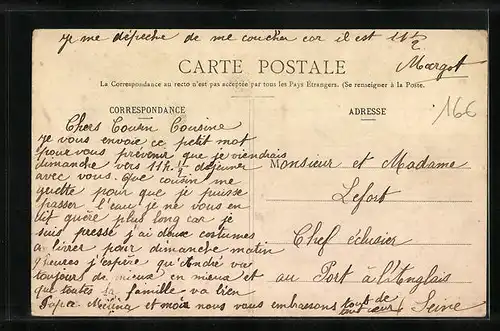 je me dépêche de me coucher car il est 11h ½
Margot
CARTE POSTALE
La Correspondance au recto n'est pas acceptée par tous les Pays Etrangers. (Se renseigner à la Poste.
166
CORRESPONDANCE
Chers Cousin Cousine
je vous envoie ce petit mot
pour vous prévenir que je viendrais
dimanche vers 11h ½ déjeuner
avec vous. Que cousin me
guette pour que je puisse
passer l'eau je ne vous en
dit guère plus long car je
suis pressé j'ai deux costumes
a livrer pour dimanche matin
9 heures j'espère qu'André va
toujours de mieux en mieux et
que toutes la famille va bien
Papa et moi nous vous embrassons tous de
tout cœur
ADRESSE
Monsieur et Madame
Lefort
Chef éclusier
au Port à l'Anglais
Seine